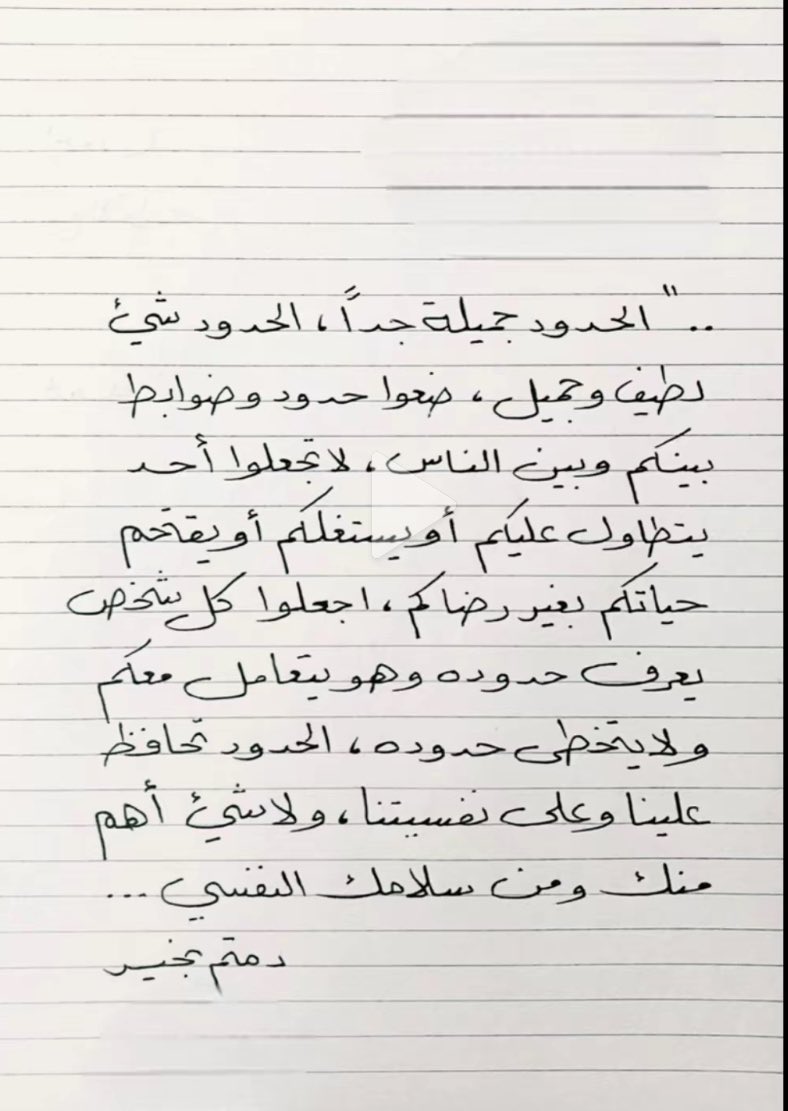 .. " الحدود جميلة جداً، الحدود شيئ
لطيف وجميل، ضعوا حدود وضوابط
بينكم وبين الناس، لا تجعلوا أحد
يتطاول عليكم أو يستغلكم أو يقتحم
حياتكم بغير رضاكم، اجعلوا كل شخص
يعرف حدوده وهو يتعامل معكم
ولا يتخطى حدوده، الحدود تحافظ
علينا وعلى نفسيتنا، ولا شيئ أهم
منك ومن سلامك النفسي ...
دمتم بخير